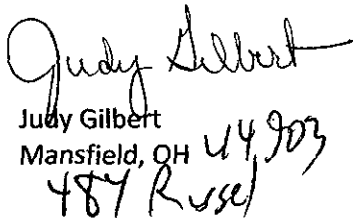 Judy Gilbert
Judy Gilbert
Mansfield, OH 44903
487 Russel